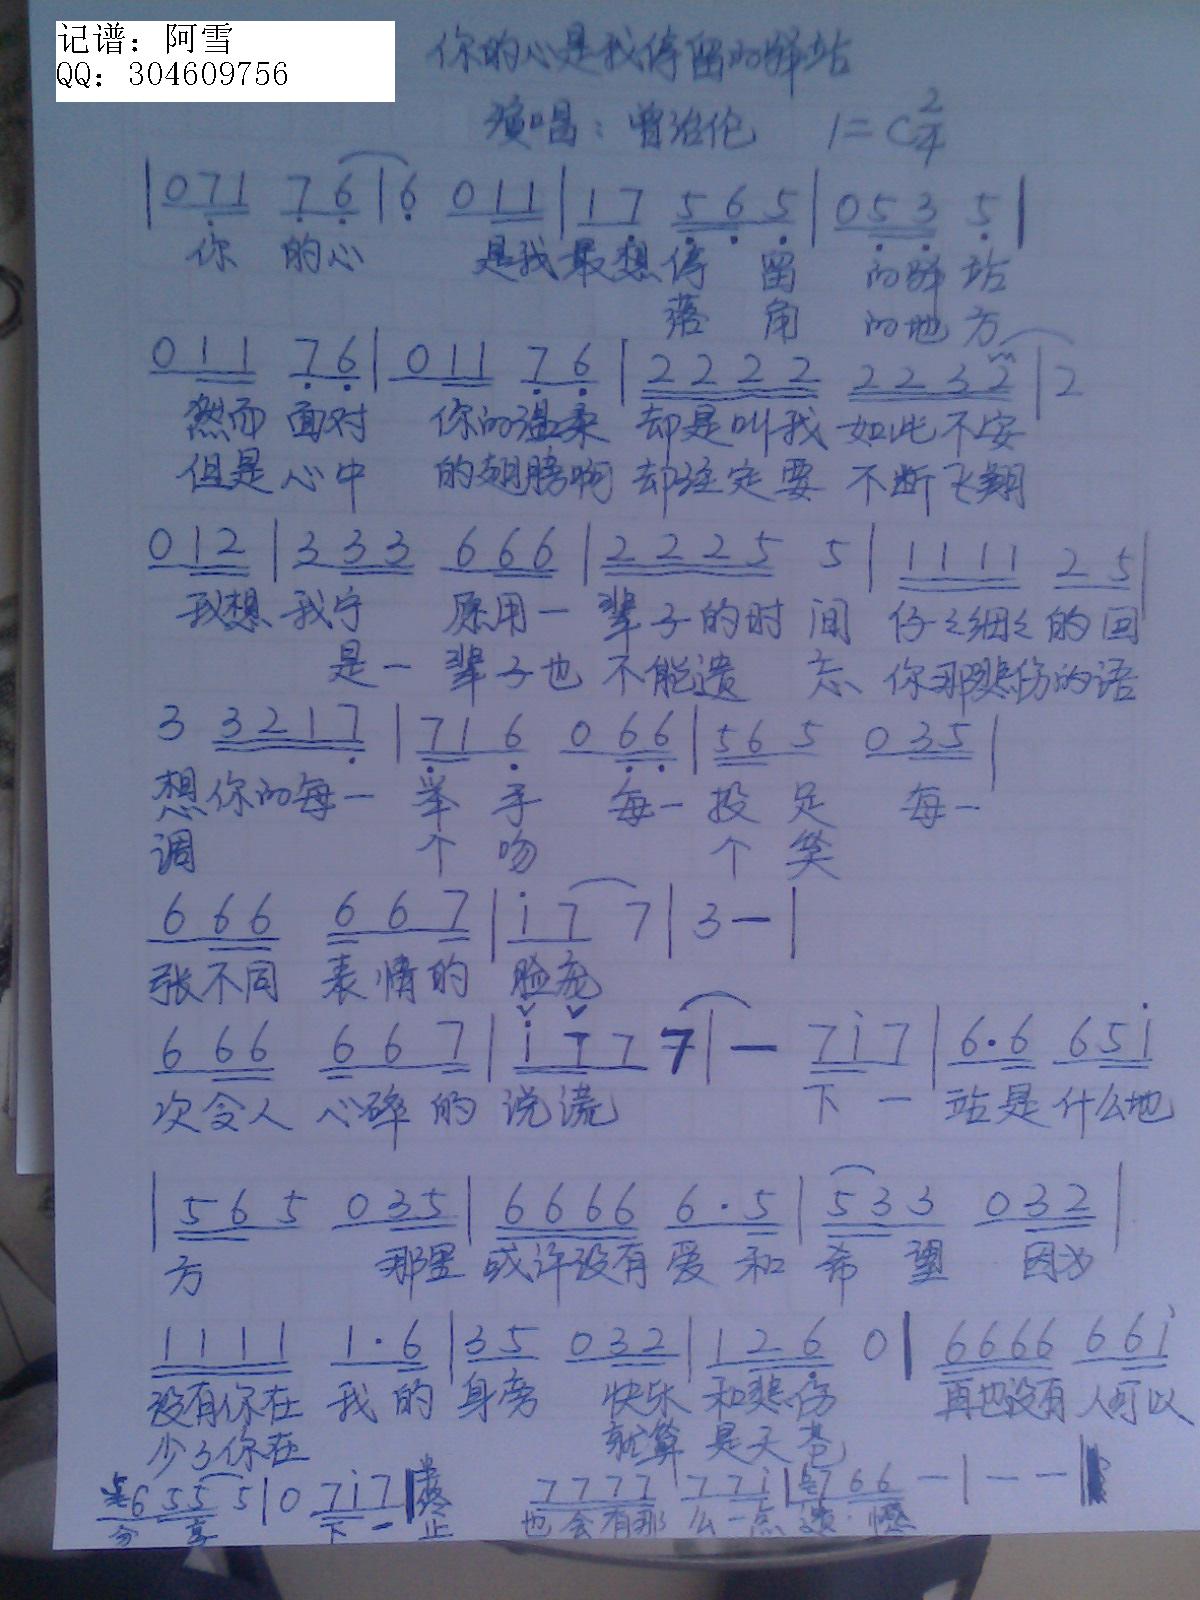 记谱：阿雪
QQ：304609756
你的心是我停留的驿站
演唱：曾治伦 1=C 2/4
|071 76|6 011|17 565|053 5|
你 的心 是我最想停 留 的驿站
落角 的地方
011 76|011 76|2222 2232|2
然而面对 你的温柔 却是叫我 如此不安
但是心中 的翅膀啊 却注定要 不断飞翔
012|333 666|2225 5|1111 25|
我想我宁 愿用一 辈子的时间 仔々细々的回
是一 辈子也 不能遗 忘 你那悲伤的语
3 3217|716 066|565 035|
想你的每一 举手 每一 投足 每一
调 个吻 个笑
666 667|i7 7|3－|
张不同 表情的 脸庞
666 667|i77 7|－ 7i7|6·6 65i
次令人 心碎的 说谎 下一 站是什么地
|565 035|6666 6·5|533 032|
方 那里 或许没有 爱和 希望 因为
1111 1·6|35 032|126 0|6666 66i
没有你在 我的 身旁 快乐 和悲伤 再也没有 人可以
少了你在 就算 是天苍
655 5|0 7i7| 7777 77i|766 －|－－|
分 享 下一 终止 也会有那 么一点 遗憾